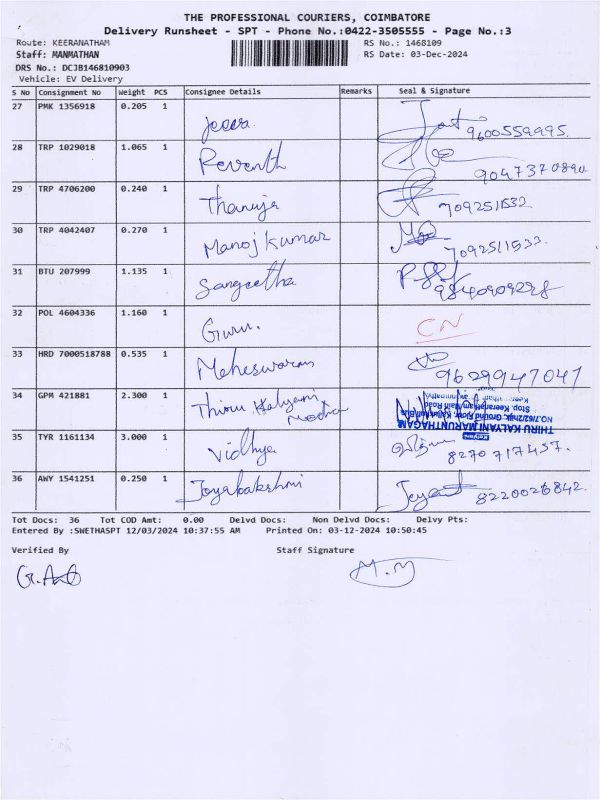 THE PROFESSIONAL COURIERS, COIMBATORE
Delivery Runsheet - SPT - Phone No.:0422-3505555 - Page No.:3
Route: KEERANATHAM RS No.: 1468109
Staff: MANMATHAN RS Date: 03-Dec-2024
DRS No.: DCJB146810903
Vehicle: EV Delivery
S No Consignment No Weight PCS Consignee Details Remarks Seal & Signature
27 PMK 1356918 0.205 1 9600559995.
28 TRP 1029018 1.065 1 Reventh
29 TRP 4706200 0.240 1 Thanuja 7092511533
30 TRP 4042407 0.270 1 Manoj Kumar 7092511533.
31 BTU 207999 1.135 1 Sangeetha
32 POL 4604336 1.160 1 Guru. CN
33 HRD 7000518788 0.535 1 Maheswaran 9629947047
34 GPM 421881 2.300 1 Thiru Kalyani
THIRU KALYANI MARUNTHAGAM
Kalyani
35 TYR 1161134 3.000 1 Vidhya 8270717457.
36 AWY 1541251 0.250 1 Jayalakshmi 8220026842.
Tot Docs: 36 Tot COD Amt: 0.00 Delvd Docs: Non Delvd Docs: Delvy Pts:
Entered By :SWETHASPT 12/03/2024 10:37:55 AM Printed On: 03-12-2024 10:50:45
Verified By Staff Signature
M.M